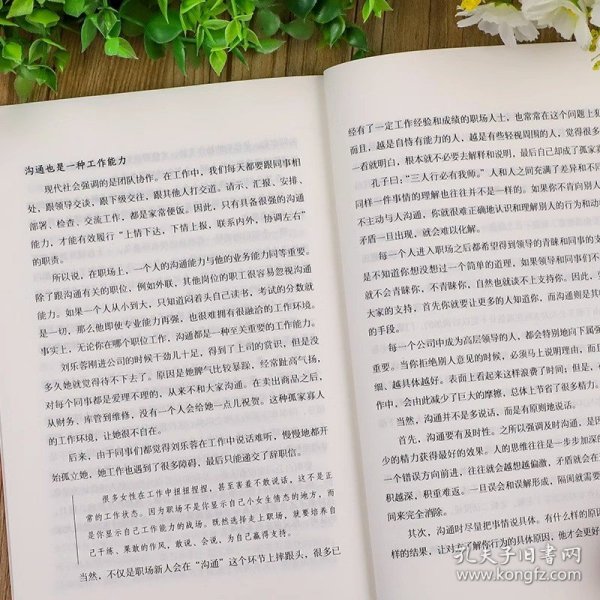 沟通也是一种工作能力
现代社会强调的是团队协作。在工作中，我们每天都要跟同事相
处，跟领导交谈，跟下级交往，跟其他人打交道。请示、汇报、安排、
部署、检查、交流工作，都是家常便饭。因此，只有具备很强的沟通
能力，才能有效履行“上情下达，下情上报，联系内外，协调左右”
的职责。
所以说，在职场上，一个人的沟通能力与他的业务能力同等重要。
除了跟沟通有关的职位，例如外联，其他岗位的职工很容易忽视沟通
能力。如果一个人从小到大，只知道闷着头自己读书，考试的分数就
是一切，那么他即使专业能力再强，也很难拥有很融洽的工作环境。
事实上，无论你在哪个职位工作，沟通都是一种至关重要的工作能力。
刘乐蓉刚进公司的时候干劲儿十足，得到了上司的赏识，但是没
多久她就觉得待不下去了。原因是她脾气比较暴躁，经常趾高气扬，
对每个同事都是爱理不理的，从来不和大家沟通。在卖出商品之后，
从财务、库管到维修，没有一个人会给她一点儿祝贺。这种孤家寡人
的工作环境，让她很不自在。
后来，由于同事们都觉得刘乐蓉在工作中说话难听，慢慢地都开
始孤立她，她工作也遇到了很多障碍，最后只能递交了辞职信。
很多女性在工作中扭扭捏捏，甚至害羞不敢说话，这不是正
常的工作状态。因为职场不是你显示自己小女生情态的地方，而
是你显示自己工作能力的战场。既然选择走上职场，就要培养自
己干练、果敢的作风，敢说、会说，为自己赢得支持。
当然，不仅是职场新人会在“沟通”这个环节上摔跟头，很多已
经有了一定工作经验和成绩的职场人士，也常常在这个问题上犯
而且，越是自恃有能力的人，越是有些轻视周围的人，觉得很多
一看就明白，根本就不必要去解释和说明，最后自己却成了孤家寡
孔子曰：“三人行必有我师。”人和人之间充满了差异和不同
同样一件事情的理解也往往并不是一样的。如果你不肯向别人
不主动与人沟通，你就很难正确地认识和理解别人的行为和动
矛盾一旦出现，就会难以化解。
每一个人进入职场之后都希望得到领导的青睐和同事的支
是不知道你想没想过一个简单的道理，如果领导和同事们不
就不会青睐你，不青睐你，自然也就谈不上支持你。因此，
大家的支持，首先你就要让更多的人知道你，而沟通则是其
的手段。
每一个公司中成为高层领导的人，都会特别地向下属强
重要。当你拒绝别人意见的时候，必须马上说明理由，而且
细、越具体越好。表面上看起来这样浪费了时间；但是，
作中，会由此减少了巨大的摩擦，总体上节省了很多精力。
当然，沟通并不是多说话，而是有原则地说话。
首先，沟通要有及时性。之所以强调及时沟通，是因
少的精力获得最好的效果。人的思维往往是一步步加深的
一个错误方向前进，往往就会越想越偏激，矛盾就会在
积越深，积重难返。一旦误会和误解形成，隔阂就需要
间来完全消除。
其次，沟通时尽量把事情说具体。有什么样的原因
样的结果，让对方了解你行为的具体原因，他才会更好
孔夫子旧书网
www.kongfz.com